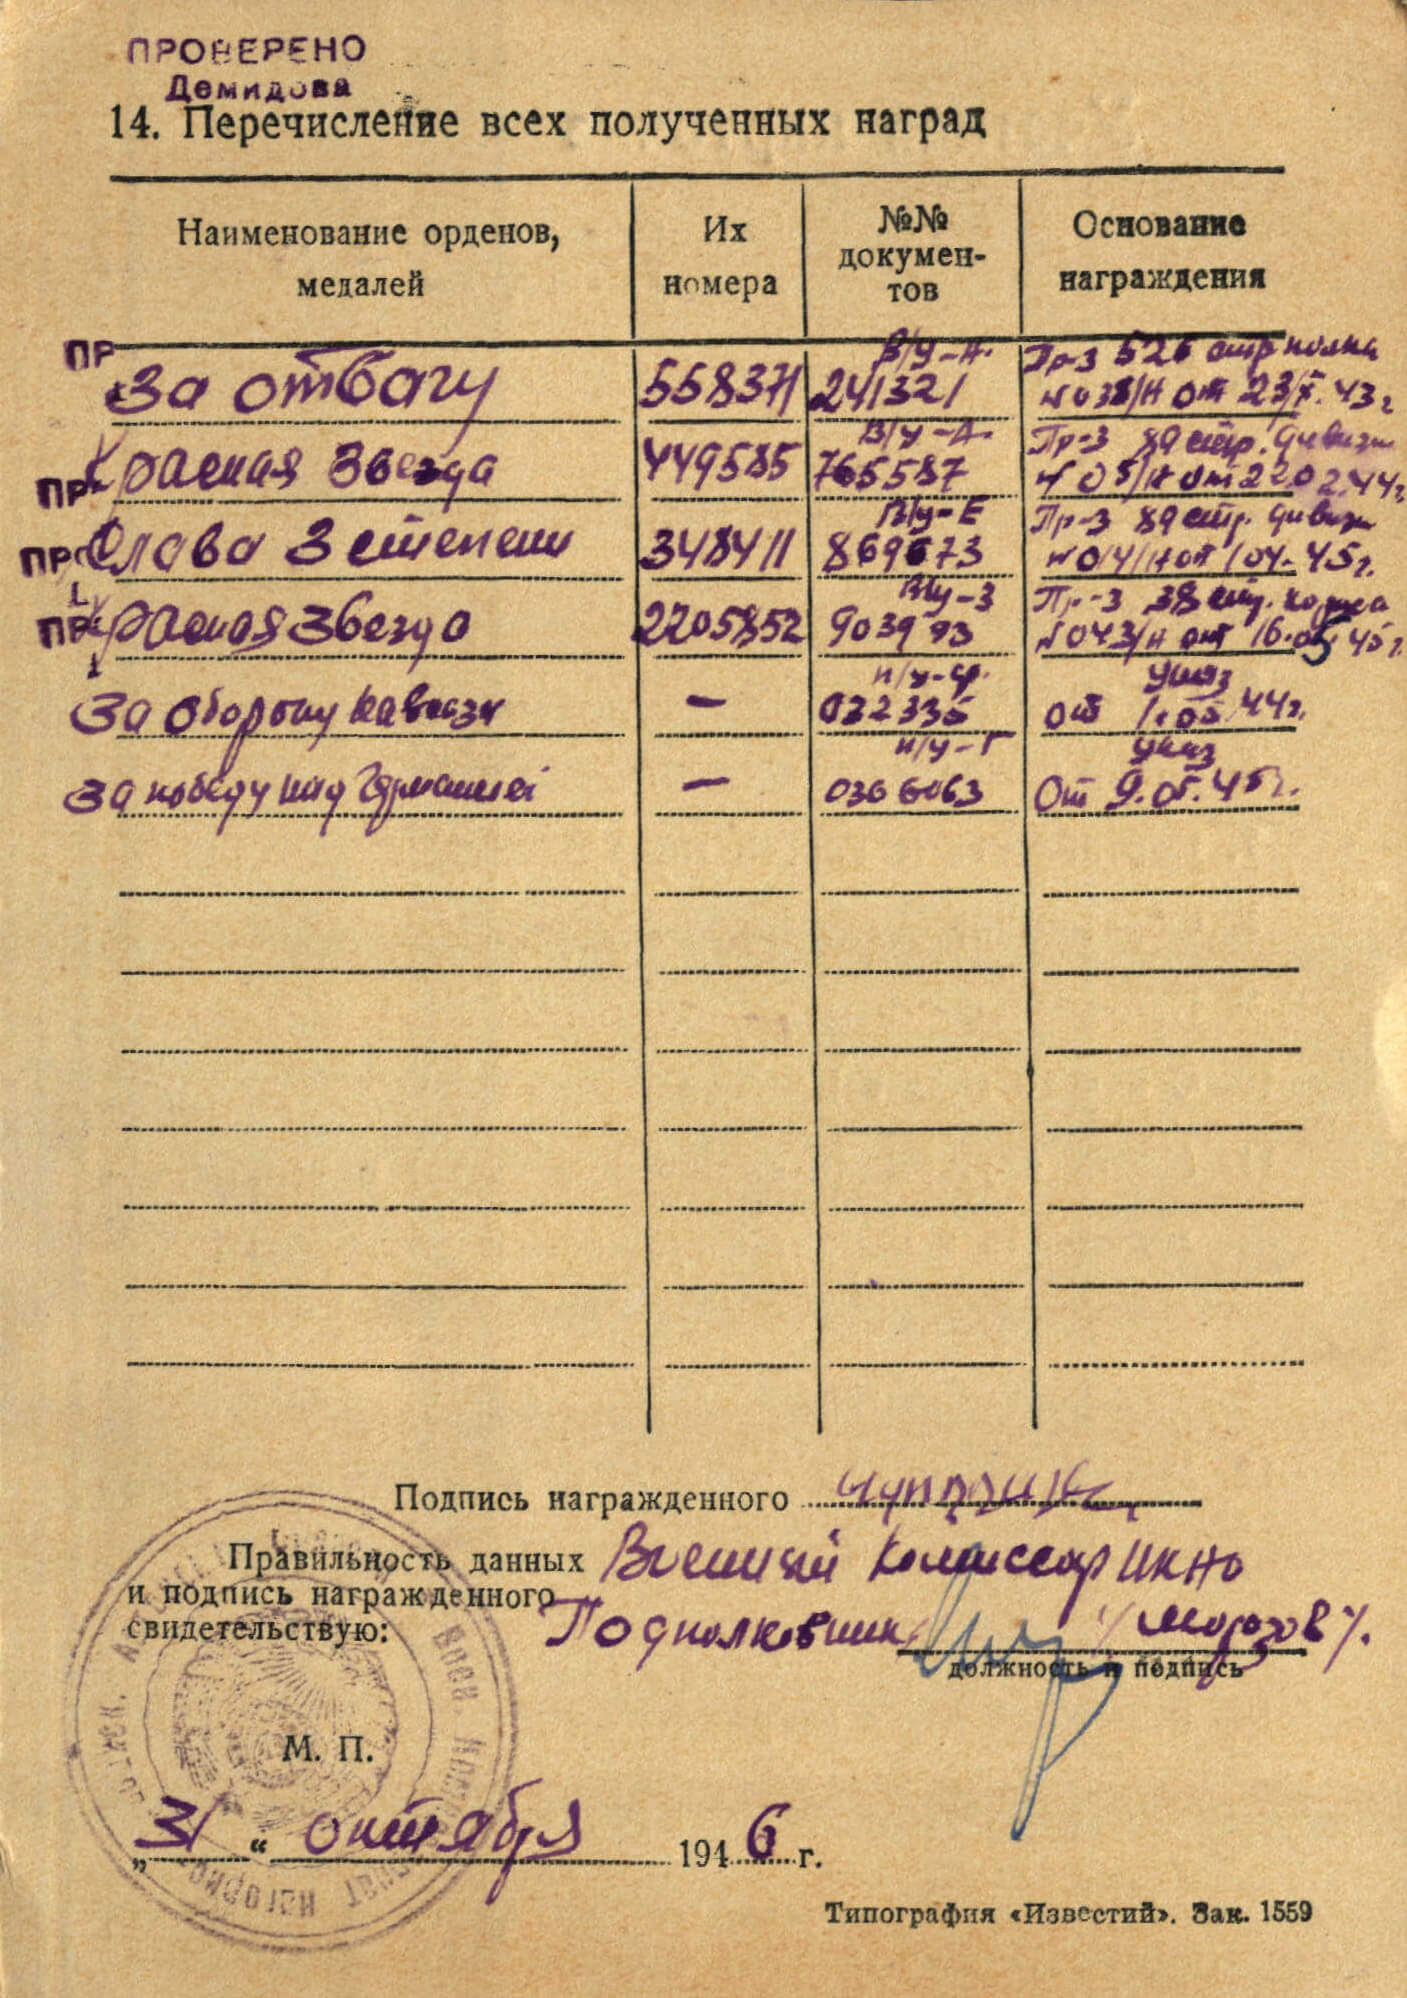 ПРОВЕРЕНО
Демидова
14. Перечисление всех полученных наград
Наименование орденов, медалей
Их номера
№№ докумен-тов
Основание награждения
ПР
За отвагу 558371 В/у-А. 241321 Пр-з 526 стр полка №038/н от 23/X.43г
ПР Красная Звезда 449585 В/у-А. 765587 Пр-з 89 стр. дивизии №05/н от 22.02.44г.
ПР Слава 3 степени 348411 В/у-Е 869673 Пр-з 89 стр. дивизии №014/н от 1.04.45г.
ПР Красная Звезда 2205852 В/у-З 903993 Пр-з 38 стр. корпуса №043/н от 16.05.45г.
За оборону Кавказа — н/у-ср. 022335 Указ от 1.05.44г.
За победу над Германией — н/у-Г 0366063 Указ От 9.05.45г.
Подпись награжденного
Правильность данных Военный Комиссар ИКНО
и подпись награжденного
свидетельствую: Подполковник /Морозов/.
должность и подпись
М. П.
„31“ октября 1946 г.
Типография «Известий». Зак. 1559